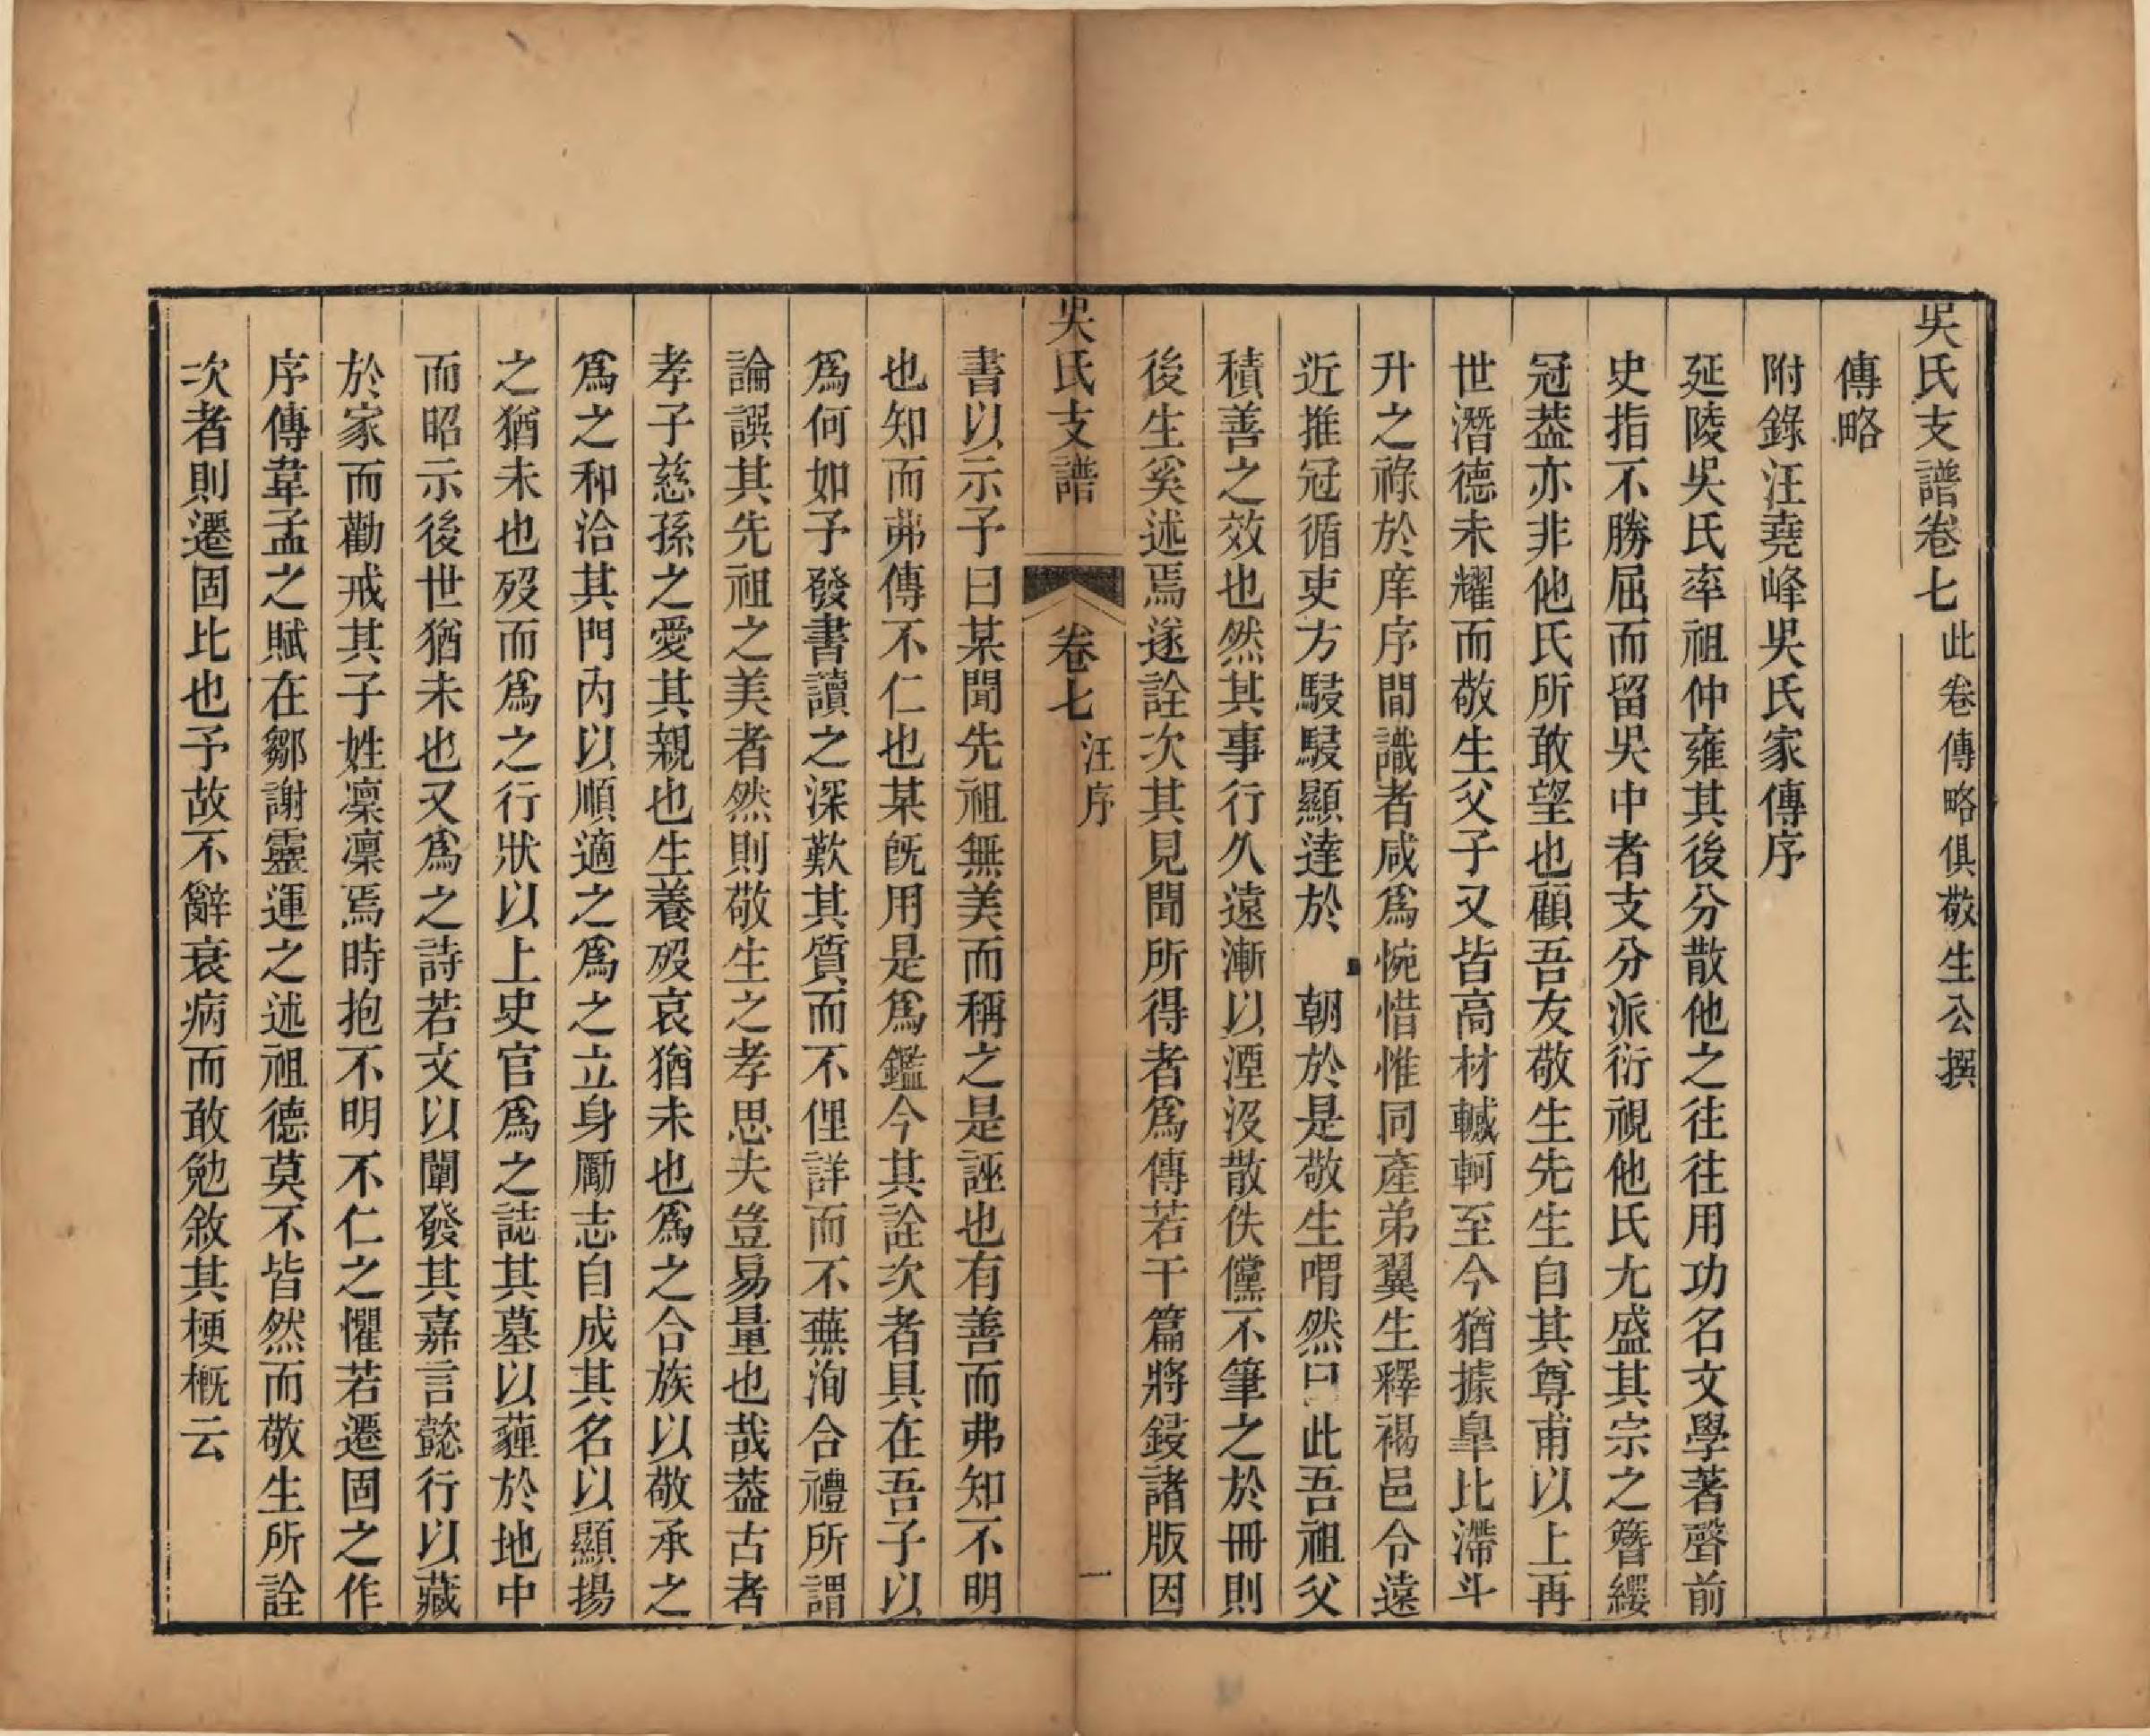 吳氏支譜卷七此卷傳略俱敬生公撰
傳略
附錄汪堯峰吳氏家傳序
延陵吳氏率祖仲雍其後分散他之往往用功名文學著聲前
史指不勝屈而留吳中者支分派衍視他氏尢盛其宗之簪纓
冠葢亦非他氏所敢望也顧吾友敬生先生自其尊甫以上再
世潛德未耀而敬生父子又皆高材轗軻至今猶據臯比滯斗
升之祿於庠序間識者咸爲惋惜惟同產弟翼生釋褐邑令遠
近推冠循吏方駸駸顯達於朝於是敬生喟然曰此吾祖父
積善之效也然其事行久遠漸以湮沒散佚儻不筆之於冊則
後生奚述焉遂詮次其見聞所得者爲傳若干篇將鋟諸版因
吳氏支譜
卷七
汪序
一
書以示予曰某聞先祖無美而稱之是誣也有善而弗知不明
也知而弗傳不仁也某旣用是爲鑑今其詮次者具在吾子以
爲何如予發書讀之深歎其質而不俚詳而不蕪洵合禮所謂
論譔其先祖之美者然則敬生之孝思夫豈易量也哉葢古者
孝子慈孫之愛其親也生養歿哀猶未也爲之合族以敬承之
爲之和洽其門內以順適之爲之立身勵志自成其名以顯揚
之猶未也歿而爲之行狀以上史官爲之誌其墓以薶於地中
而昭示後世猶未也又爲之詩若文以闡發其嘉言懿行以藏
於家而勸戒其子姓凛凛焉時抱不明不仁之懼若遷固之作
序傳韋孟之賦在鄒謝靈運之述祖德莫不皆然而敬生所詮
次者則遷固比也予故不辭衰病而敢勉敘其梗概云